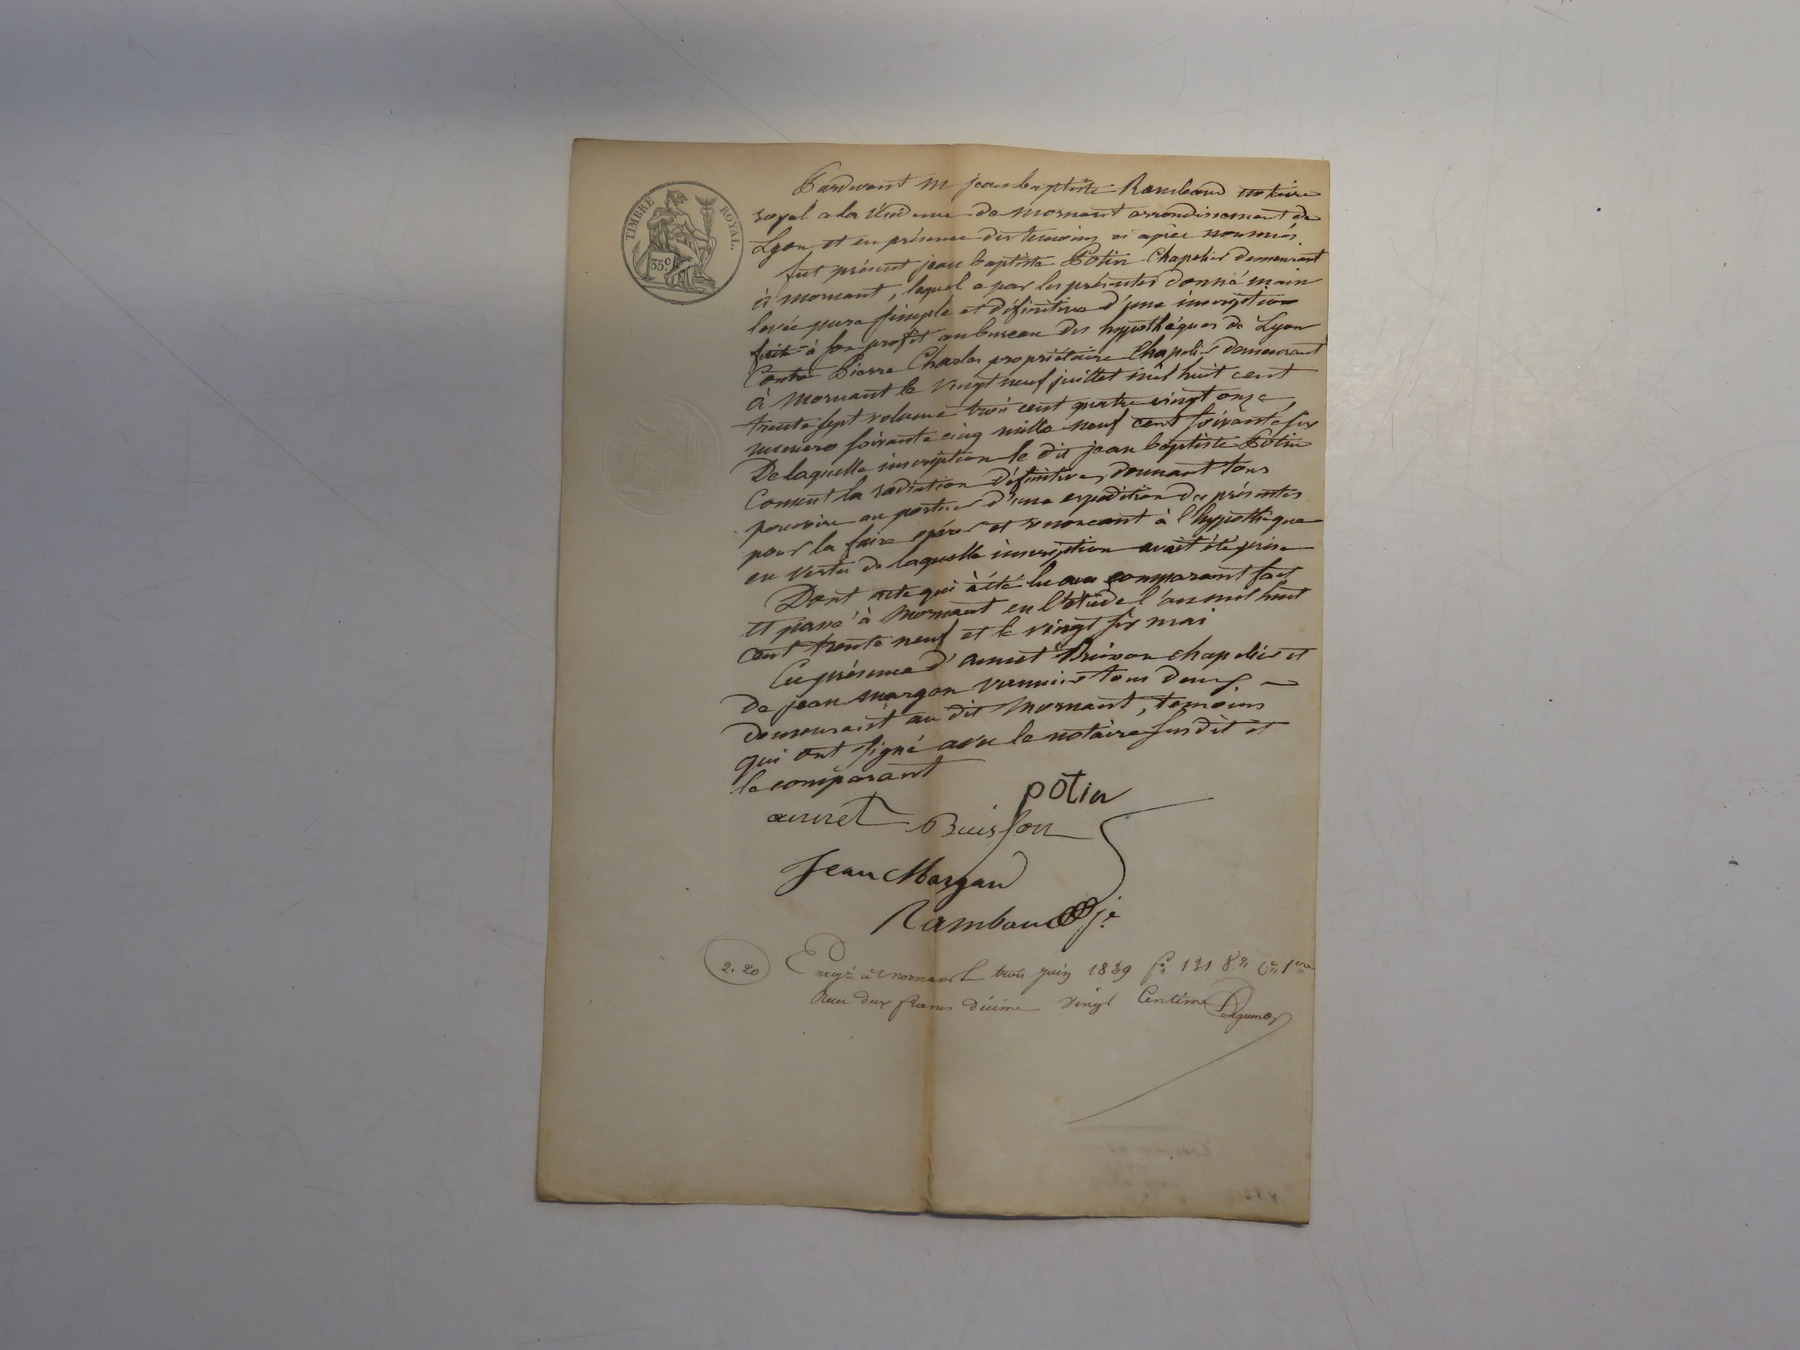 TIMBRE ROYAL.
35c
Pardevant Me jean baptiste Rambaud notaire
royal a la résidence de mornant arrondissement de
Lyon et en présence des temoins ci après nommés.
fut présent jean baptiste Potin Chapelier demeurant
à mornant, lequel a par les présentes donné main
levée pure simple et définitive d'une inscription
faite à son profit au bureau des hypothéques de Lyon
Contre Pierre Charles propriétaire Chapelier demeurant
à Mornant le vingt neuf juillet mil huit cent
trente sept volume trois cent quatre vingt onze,
numero soixante cinq mille neuf cent soixante six
De laquelle inscription le dit jean baptiste Potin
Consent la radiation définitive, donnant tous
pouvoirs au porteur d'une expédition des présentes
pour la faire opérer et renoncant à l'hypothéque
en vertu de laquelle inscription avait été prise
Dont acte qui à été lu au comparant fait
et passé à Mornant en l'étude l'an mil huit
cent trente neuf et le vingt six mai
En présence d'annet Buisson chapelier et
De jean Margan tous deux
demeurant au dit Mornant, temoins
qui ont signé avec le notaire susdit et
le comparant
potin
annet Buisson
Jean Margan
Rambaud je
2. 20
Enregé à Mornant le trois juin 1839 fo 131 Ro Ce 1ere
Reçu deux francs décime vingt Centimes